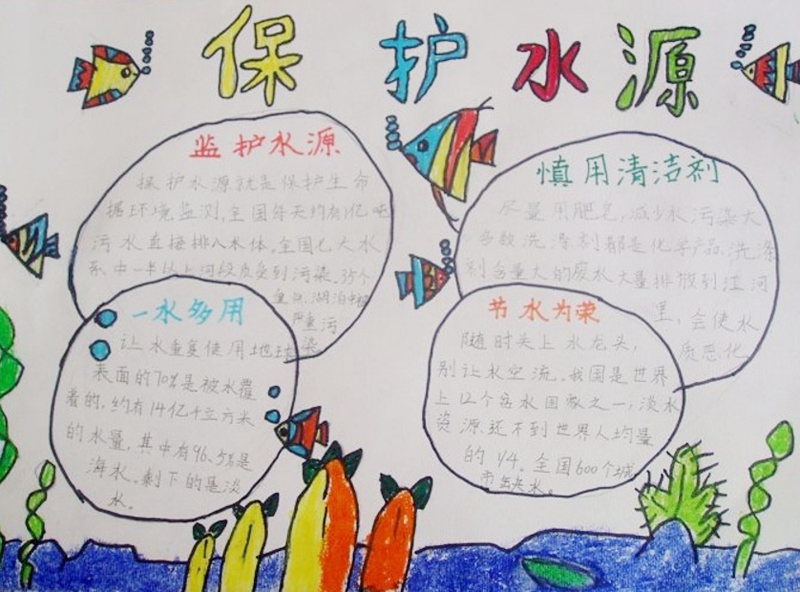 保护水源
监护水源
保护水源就是保护生命
据环境监测,全国每天约有1亿吨
污水直接排入水体。全国七大水
系中一半以上河段质受到污染。35个
重点湖泊中
严重污
染
慎用清洁剂
尽量用肥皂,减少水污染大
多数洗涤剂都是化学产品,洗涤
剂含量大的废水大量排放到江河
里,会使水
质恶化
一水多用
让水重复使用地球
表面的70%是被水覆
着的,约有14亿4立方米
的水量,其中有96.5%是
海水。剩下的是淡
水。
节水为荣
随时关上水龙头,
别让水空流。我国是世界
上12个贫水国家之一,淡水
资源还不到世界人均量
的1/4。全国600个城
市缺水。